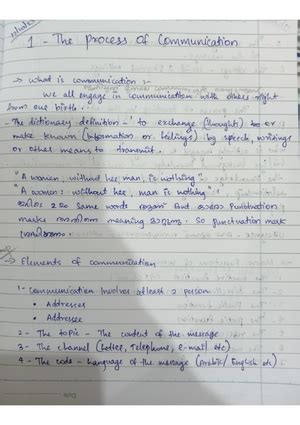 1 - The process of communication
→ What is communication :-
we all engage in communication with others right
from our birth.
- The dictionary definition - 'to exchange (thoughts) or
make known (information or feelings) by speech, writings
or other means to transmit.
"A women, without her man, is nothing".
"A women: without her, man is nothing".
250 same words Punctuation
marks meaning So punctuation mark
→ Elements of communication
1- Communication involves atleast 2 person
• Addresser
• Addressee
2 - The topic - The content of the message
3 - The channel (Letter, Telephone, E-mail etc)
4 - The code - Language of the message (Arabic/ English etc)